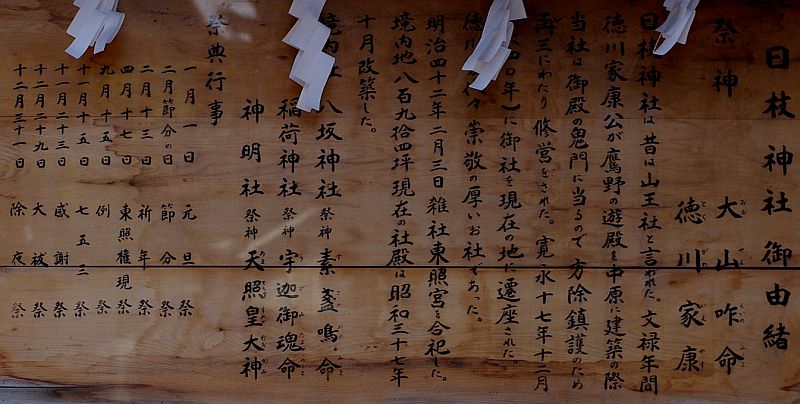 日枝神社御由緒
祭神 大山咋命
徳川家康
日枝神社は昔は山王社と言われた。文禄年間
徳川家康公が鷹野の遊殿を中原に建築の際
当社は御殿の鬼門に当るので方除鎮護のため
再三にわたり修営をされた。寛永十七年十二月
〇年)に御社を現在の地に遷座された。
徳川 崇敬の厚いお社であった。
明治四十二年二月三日雑社東照宮を合祀した。
境内地八百九拾四坪現在の社殿は昭和三十七年
十月改築した。
境内社 八坂神社 祭神 素盞鳴命
稲荷神社 祭神 宇迦御魂命
神明社 祭神 天照皇大神
祭典行事
一月一日 元旦祭
二月節分の日 節分祭
二月十三日 祈年祭
四月十七日 東照権現祭
九月十五日 例祭
十一月十五日 七五三祭
十一月二十三日 感謝祭
十二月二十九日 大祓祭
十二月三十一日 除夜祭